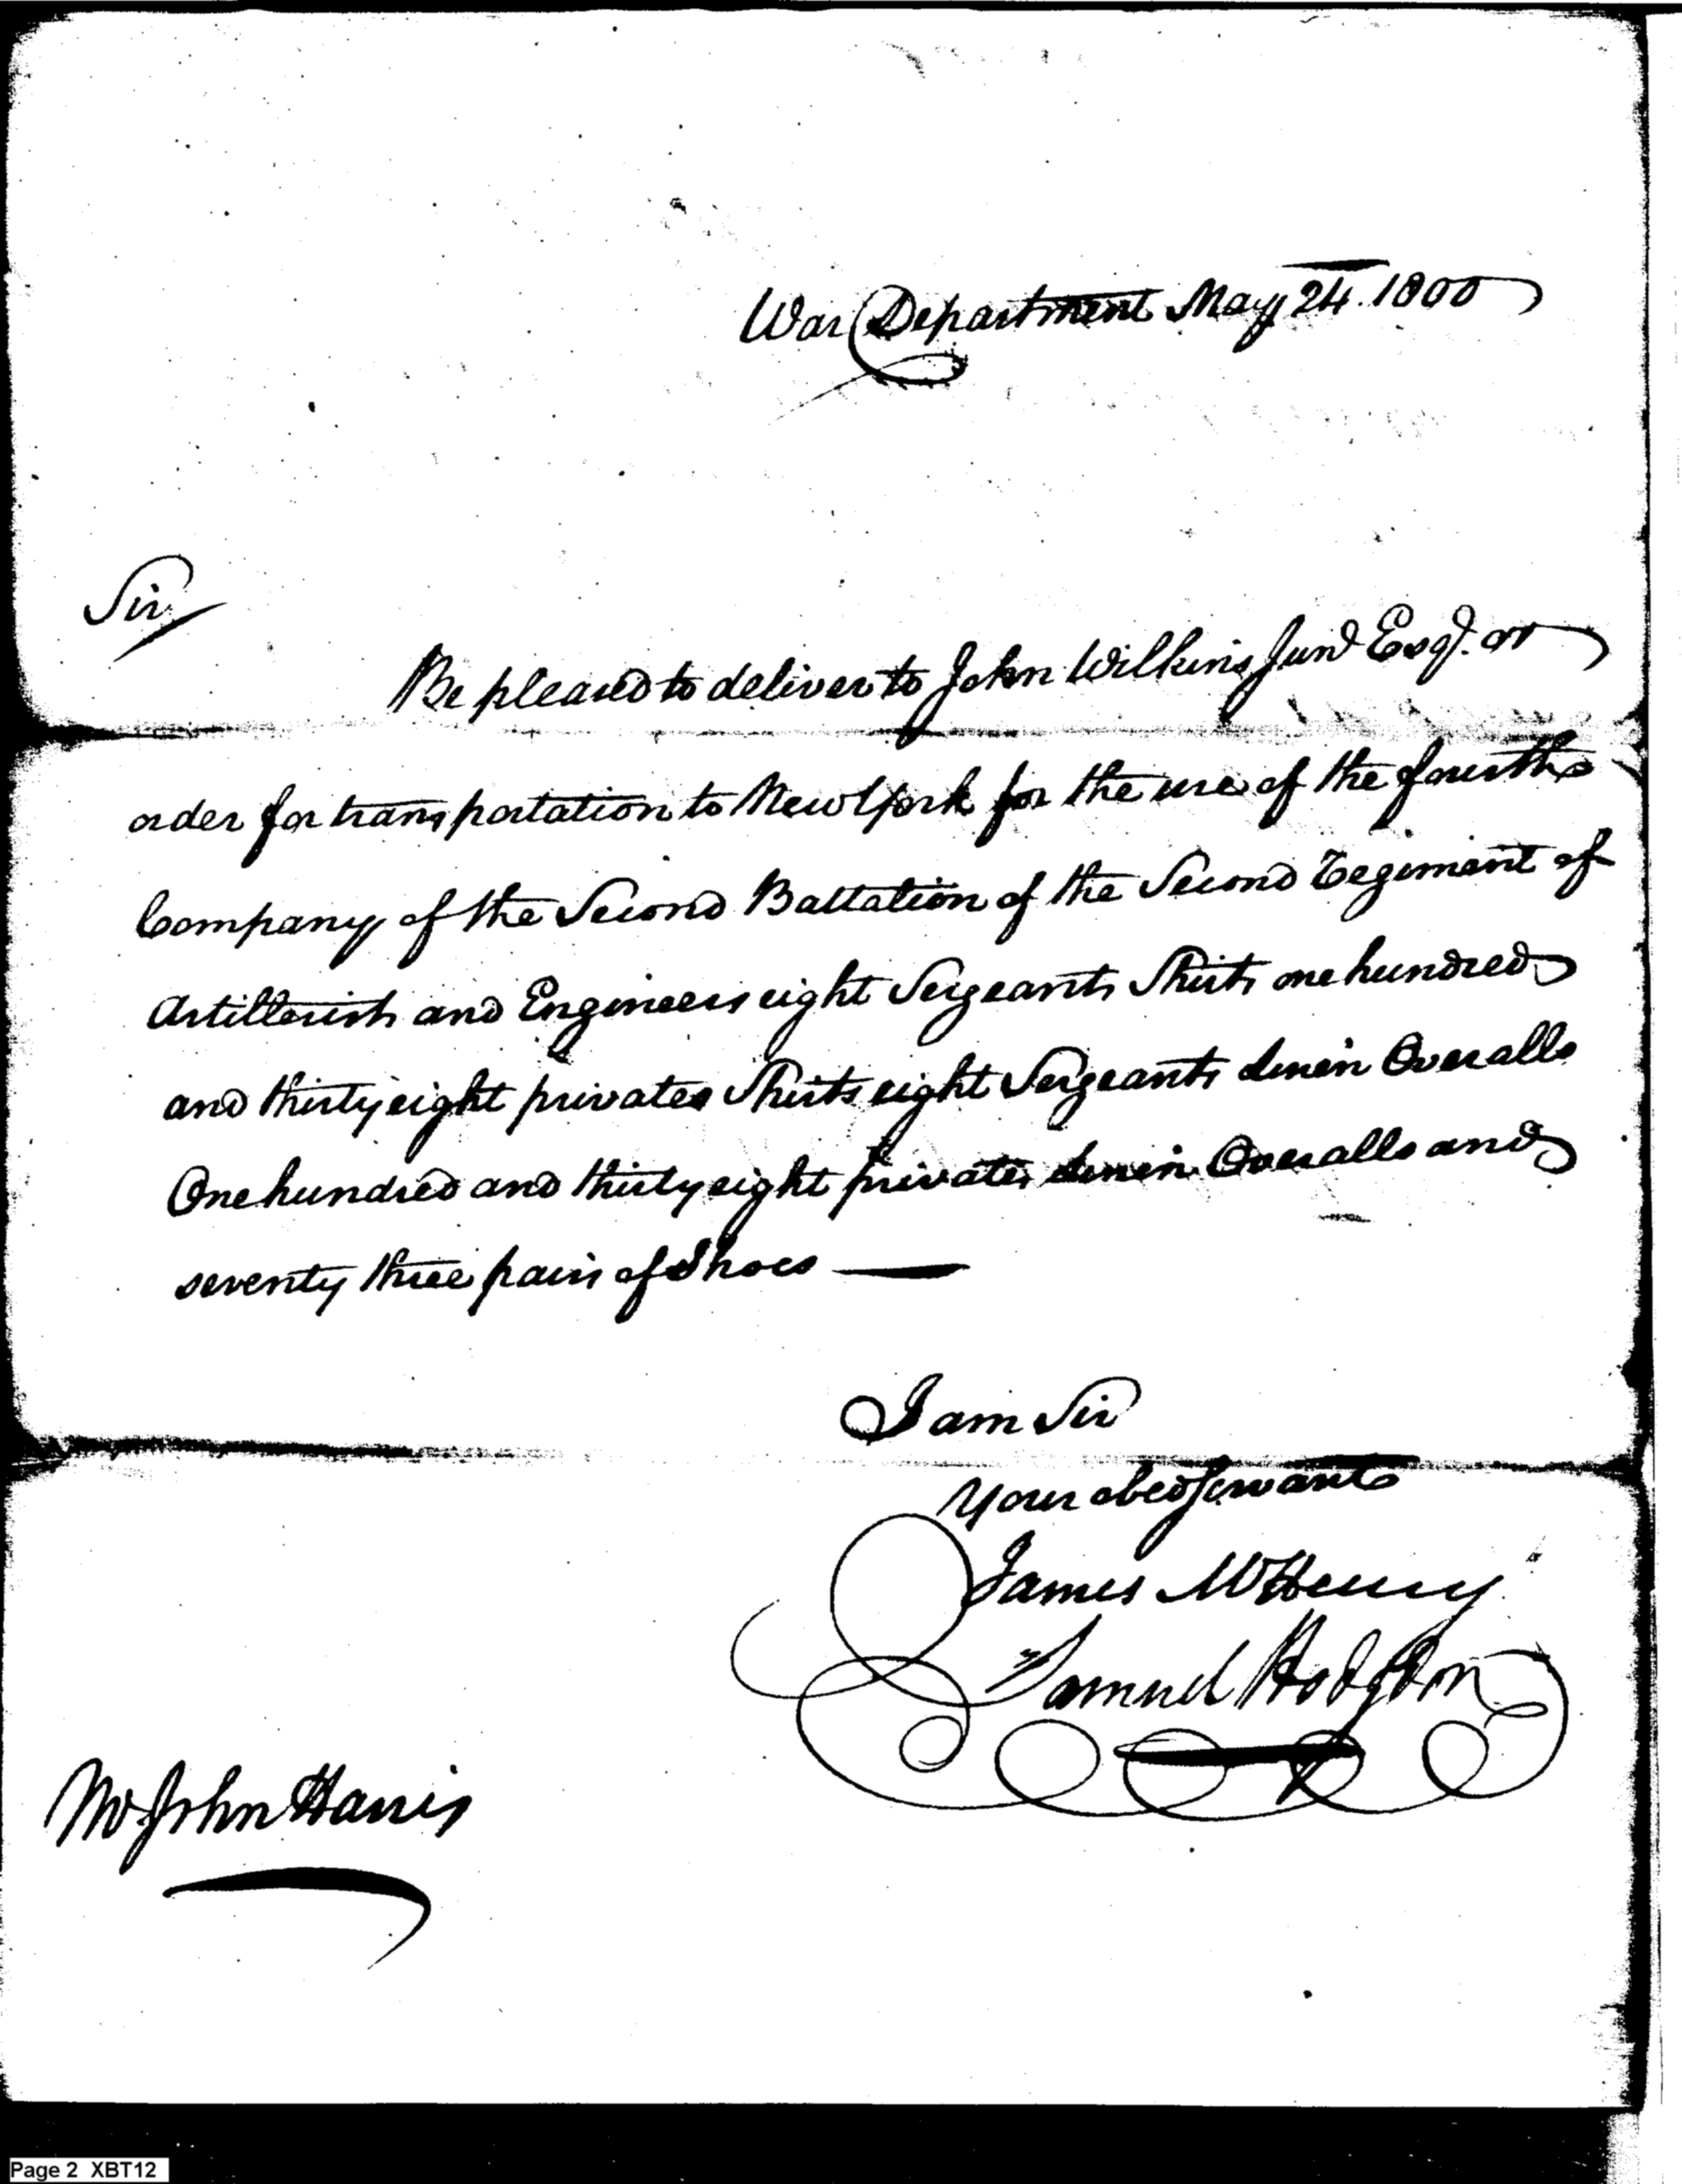 War Department May 24. 1800
Sir
Be pleased to deliver to John Wilkins Junr Esqr. or
order for transportation to New York for the use of the fourth
Company of the Second Battalion of the Second Regiment of
Artillerists and Engineers eight Sergeants Shirts one hundred
and thirty eight privates Shirts eight Sergeants linen Overalls
One hundred and thirty eight privates linen Overalls and
seventy three pairs of Shoes
I am Sir
Your obed Servant
James McHenry
Samuel Hodgdon
Mr John Harris
Page 2 XBT12